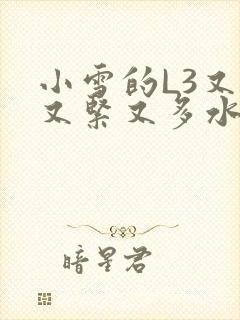 小雪的L3又
又紧又多水
暗星君